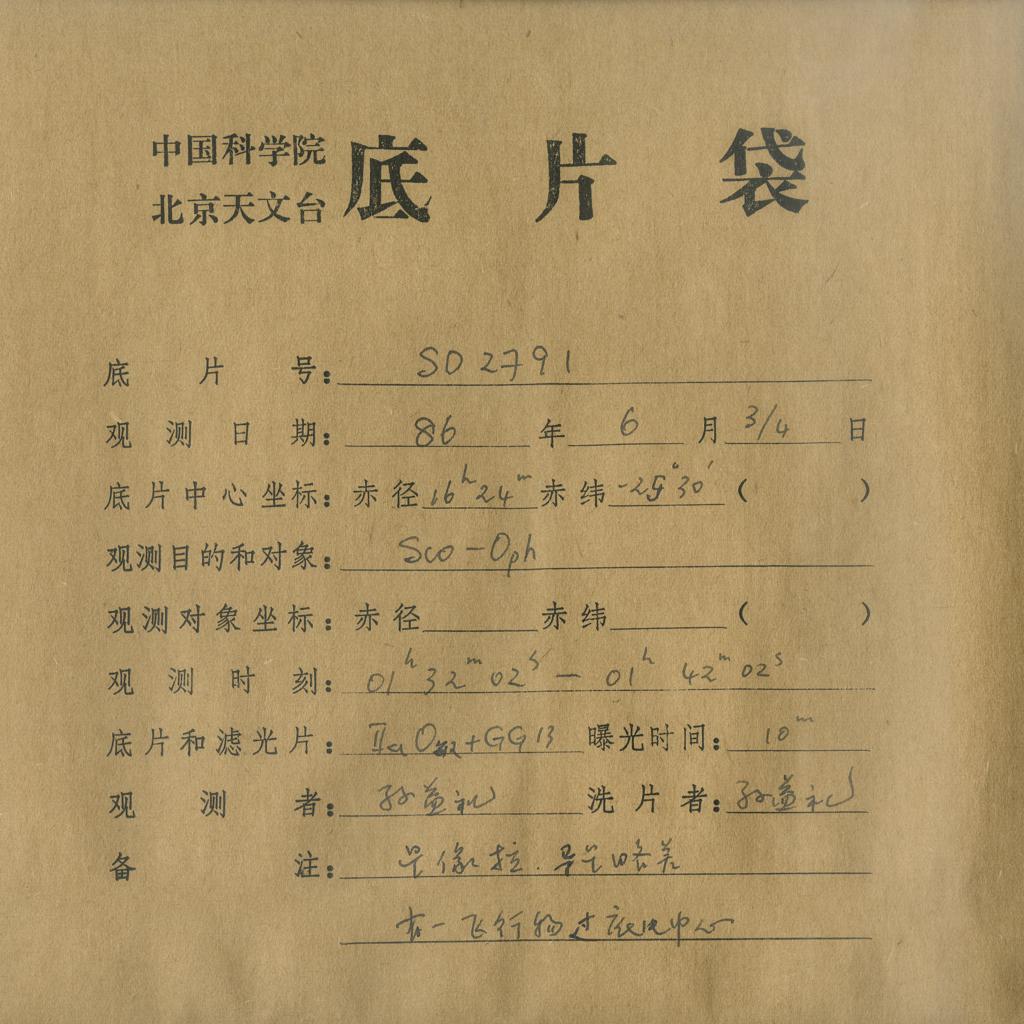 中国科学院
北京天文台
底片袋
底片号: SO 2791
观测日期: 86 年 6 月 3/4 日
底片中心坐标: 赤径 16ʰ24ᵐ 赤纬 -25°30′ ( )
观测目的和对象: Sco-Oph
观测对象坐标: 赤径 赤纬 ( )
观测时刻: 01ʰ 32ᵐ 02ˢ — 01ʰ 42ᵐ 02ˢ
底片和滤光片: IIaO敏+GG13 曝光时间: 10ᵐ
观测者: 孙益礼 洗片者: 孙益礼
备注: 星像拉.
有一飞行物过底片中心